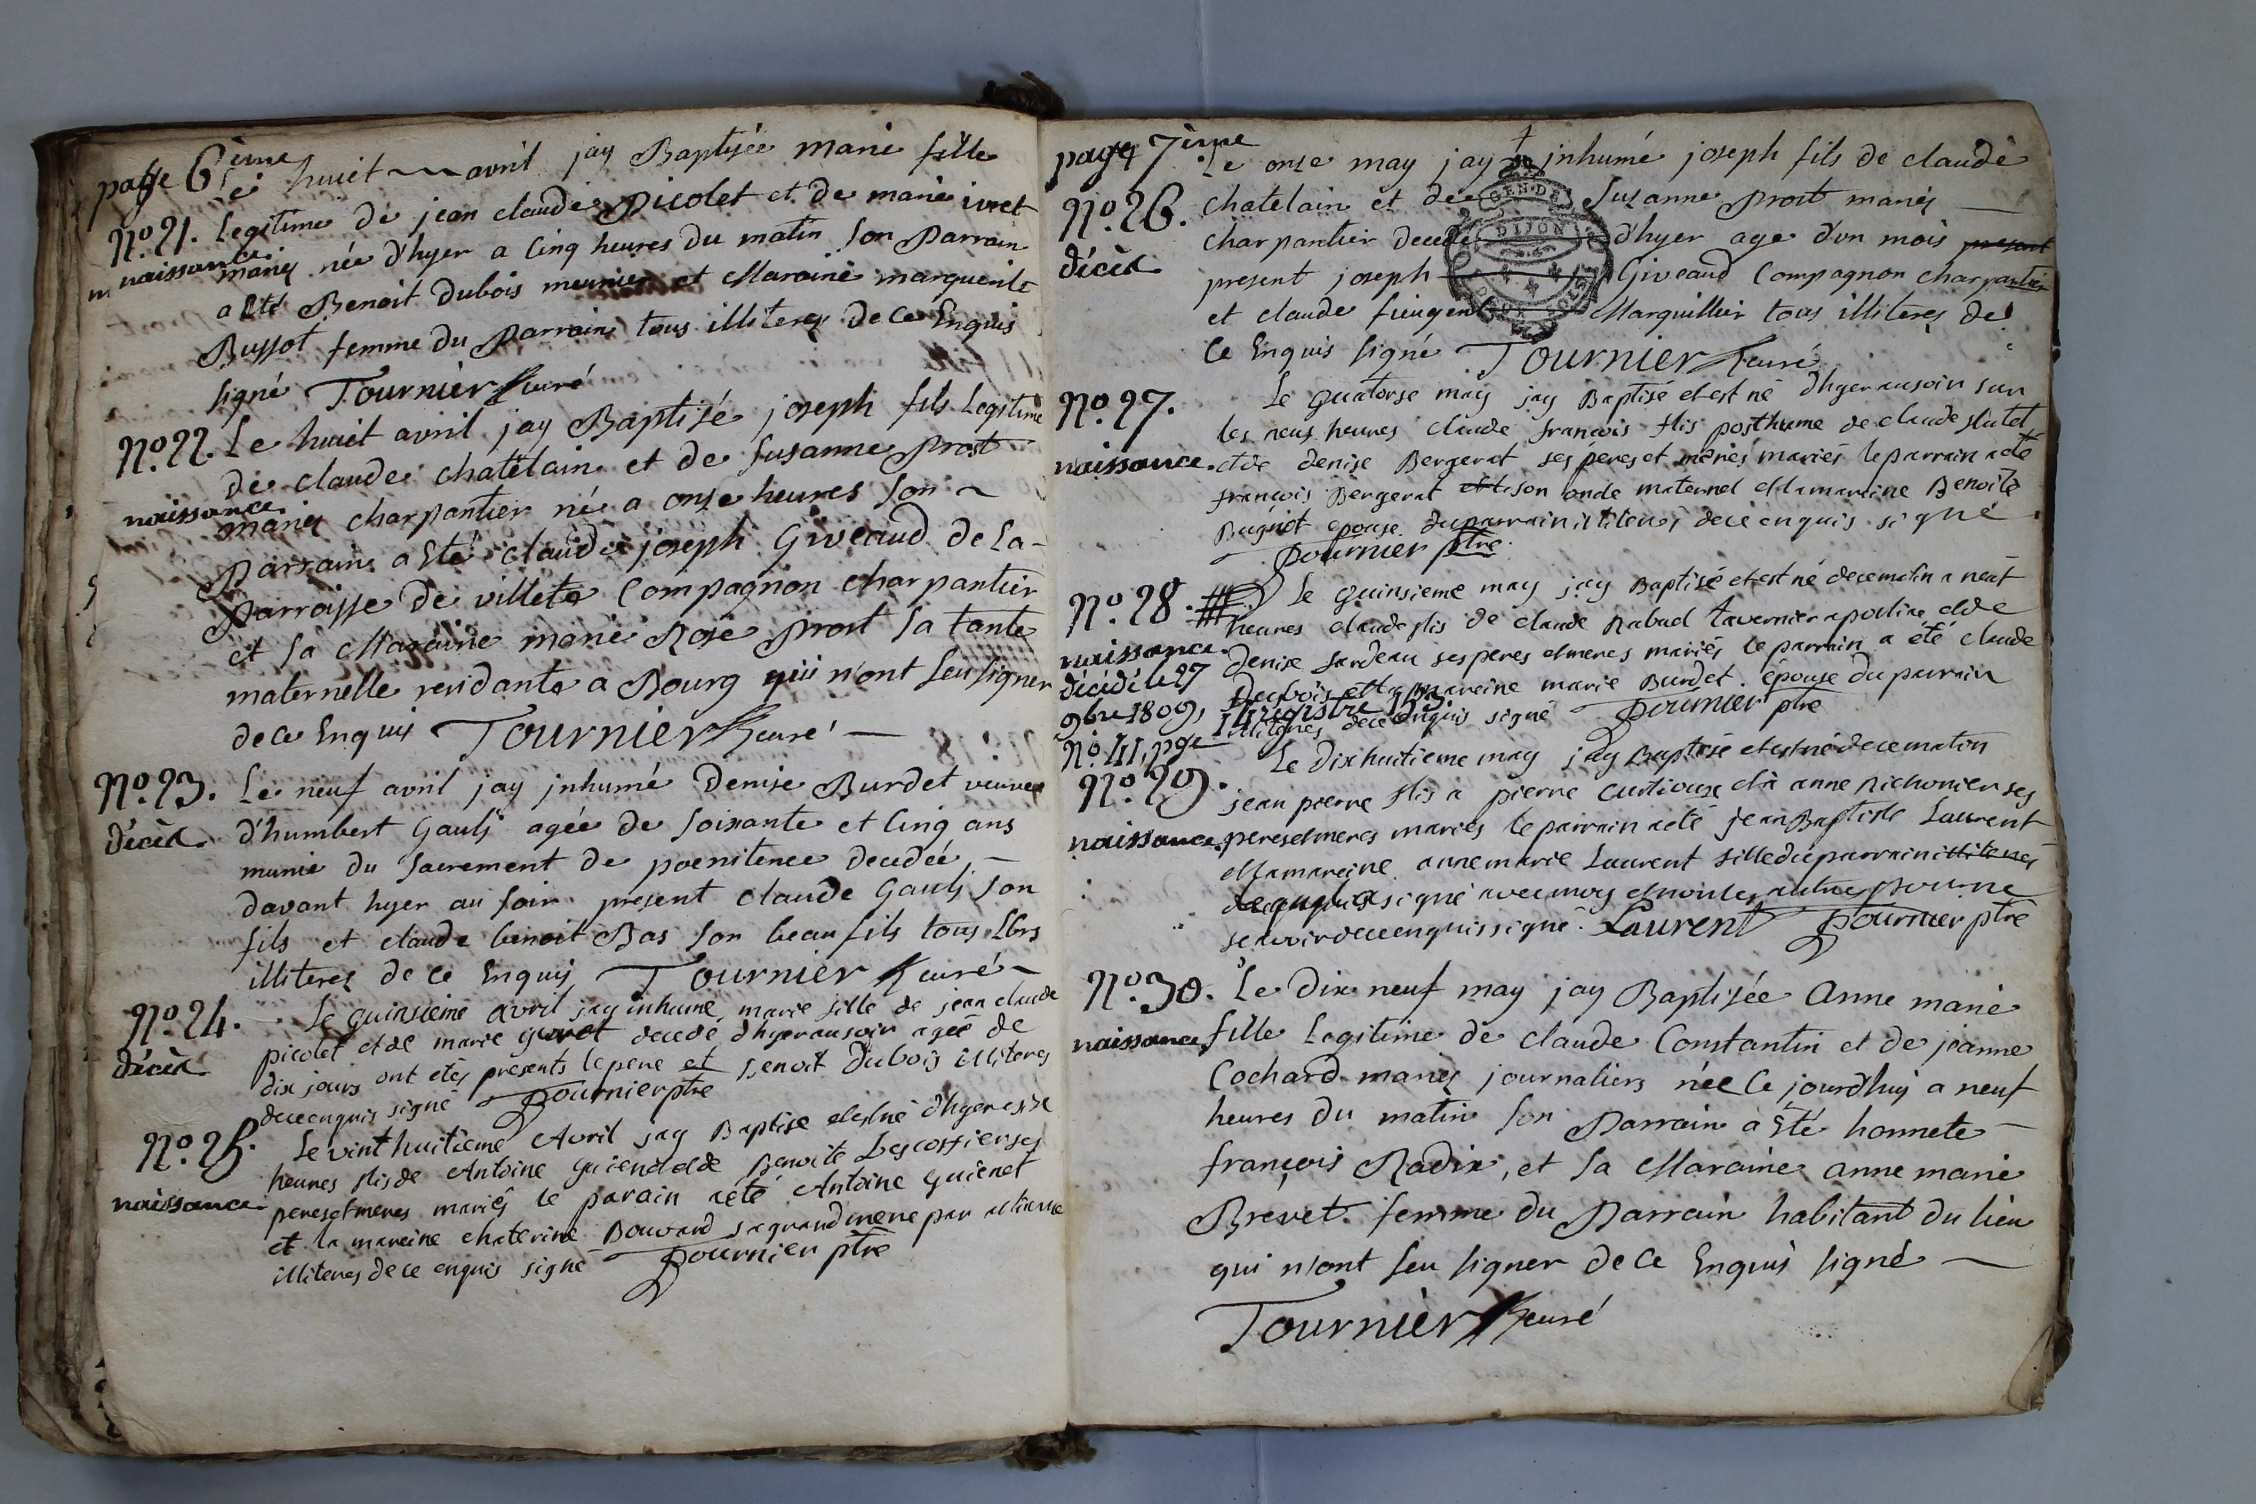 page 6ème
Le huict avril jay Baptisée marie fille
N.o 21. Legitime de jean claude Picolet et de marie ivret
naissance. mariés née d'hyer a Cinq heures du matin son Parrain
a Eté Benoit Dubois meunier et Maraine marguerite
Bussot femme du Parrain tous illiteres de ce Enquis
signé Tournier curé
N.o 22. Le huict avril jay Baptisé joseph fils Legitime
de claude chatelain et de Susanne Prost
naissance. mariés charpantier né a onze heures son
Parrain a Eté claude joseph Giveaud de la
Parroisse de villete Compagnon charpantier
et sa Maraine marie Rose Prost sa tante
maternelle residante a Bourg qui n'ont seu signer
de ce Enquis Tournier curé
N.o 23. Le neuf avril jay inhumé Denise Burdet veuve
décès. d'humbert Gaulj agée de soixante et Cinq ans
munie du sacrement de poenitence decedée
davant hyer au soir present claude Gaulj son
fils et claude benoit Bas son beau fils tous
illiteres de ce Enquis Tournier curé
N.o 24. Le quinsieme avril jay inhumé marie fille de jean claude
picolet et de marie yvret decedé d'hyer au soir agée de
décès dix jours ont etés presents le pere et benoit Dubois illiteres
de ce enquis signé Tournier ptre
N.o 25. Le vint huitieme Avril jay Baptisé et est né d'hyer
heures flis de Antoine Guienet et de Benoite Lescossier ses
naissance peres et meres mariés le parain a eté Antoine Guienet
et la mareine chaterine Bouvard sa grand mere par alliance
illiteres de ce enquis signé Tournier ptre
page 7ème
Le onze may jay inhumé joseph fils de claude
N.o 26. chatelain et de Susanne Prost mariés
charpantier decedé d'hyer age d'un mois present
décès present joseph Giveaud Compagnon charpantier
et claude Marguillier tous illiteres de
ce Enquis signé Tournier curé
N.o 27. Le quatorse may jay Baptisé et est né d'hyer au soir sur
les neuf heures claude françois flis posthume de claude
naissance. et de denise Bergerat ses peres et meres mariés le parrain a eté
françois Bergerat son oncle maternel et la mareine Benoite
Bugniot epouse du parrain illiteres de ce enquis signé
Tournier ptre
N.o 28. Le quinsieme may jay Baptisé et est né de ce matin a neuf
heures claude flis de claude Rabuel tavernier et de
naissance. denise sardeau ses peres et meres mariés le parrain a été claude
décédé le 27 Dubois et la mareine marie Burdet épouse du parrain
9bre 1809, illiteres de ce enquis signé Tournier ptre
N.o 41, pge registre 153.
N.o 29. Le dix huitieme may jay Baptisé et est né de ce matin
jean pierre flis a pierre curtioux et a anne Richonier ses
naissance. peres et meres mariés le parrain a eté jean Baptiste Laurent
et la mareine anne marie Laurent fille du parrain illiteres
de ce enquis signé avec moy et non les autres pour ne
scavoir de ce enquis signé. Laurent Tournier ptre
N.o 30. Le dix neuf may jay Baptisée Anne marie
naissance. fille Legitime de claude Constantin et de jeanne
Cochard mariés journaliers née Ce jourdhuj a neuf
heures du matin son Parrain a Eté honnete
françois Radix, et sa Maraine anne marie
Brevet femme du Parrain habitant du lieu
qui n'ont seu signer de ce Enquis signé
Tournier curé
GEN. DE
DIJON